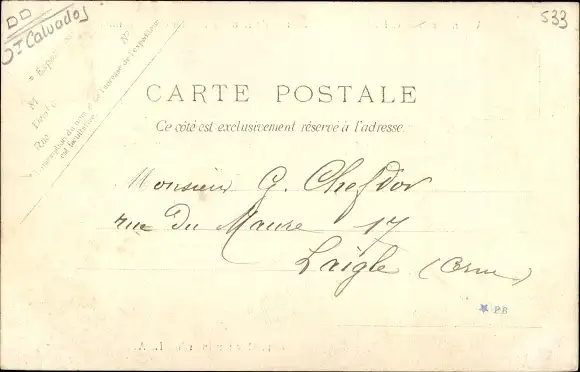 DD
Calvados
533
N°
Nom et adresse de l'expéditeur
CARTE POSTALE
Ce côté est exclusivement réservé à l'adresse.
Monsieur G. Chefdor
rue Du Maure 17
Laigle (Orne)
PB